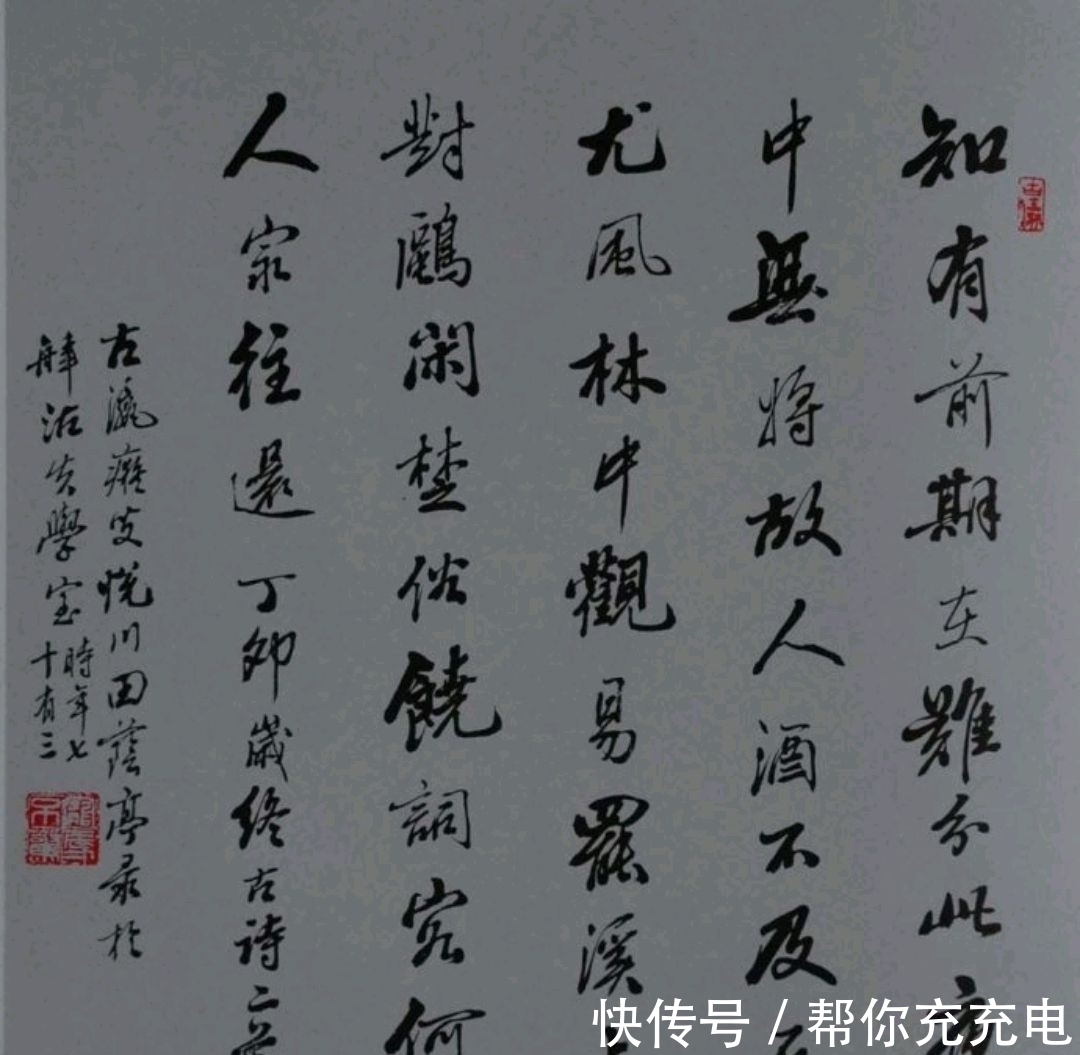 知有前期在難分此夜
中無將故人酒不及石
尤風林中觀易罷溪上
對鷗閑楚俗饒詞客何
人家往還丁卯歲終古詩二首
古瀛癡叟悅川田蔭亭录於
津沽炎學室時年七
十有三
快传号/帮你充充电